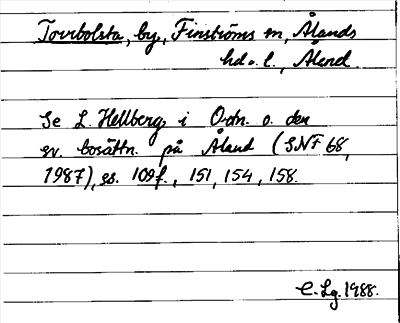 Torrbolsta, by, Finströms sn, Ålands
hd o. l., Åland.
Se L. Hellberg i Odn. o. den
sv. bosättn. på Åland (SNF 68,
1987), ss. 109f., 151, 154, 158.
C. Lg. 1988.